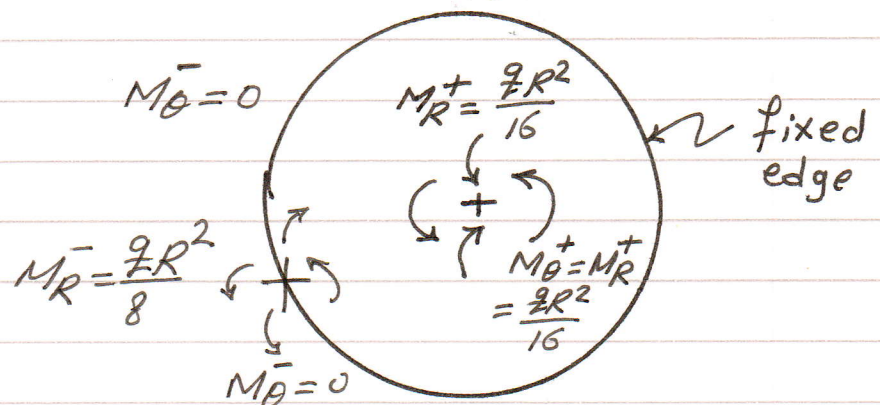 M_θ^- = 0
M_R^+ = qR²/16
fixed
edge
M_R^- = qR²/8
M_θ^+ = M_R^+
= qR²/16
M_θ^- = 0